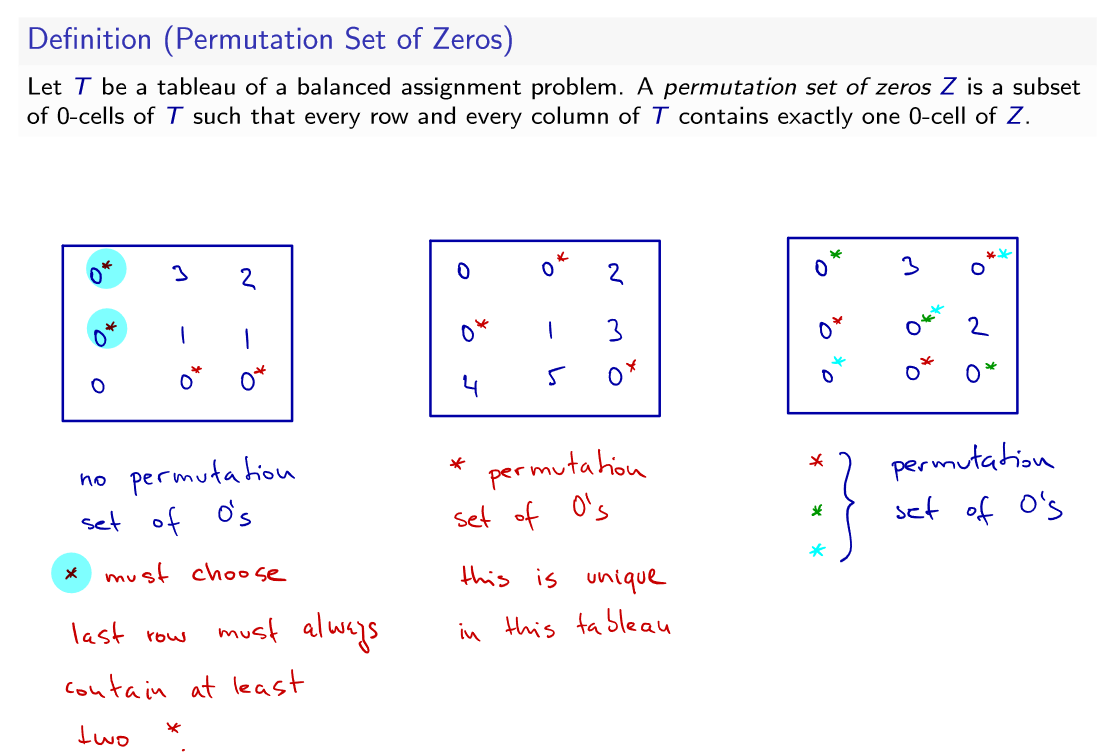 Definition (Permutation Set of Zeros)
Let T be a tableau of a balanced assignment problem. A permutation set of zeros Z is a subset
of 0-cells of T such that every row and every column of T contains exactly one 0-cell of Z.
0* 3 2
0* 1 1
0 0* 0*
no permutation
set of 0's
* must choose
last row must always
contain at least
two *.
0 0* 2
0* 1 3
4 5 0*
* permutation
set of 0's
this is unique
in this tableau
0* 3 0**
0* 0** 2
0* 0* 0*
* * * } permutation
set of 0's